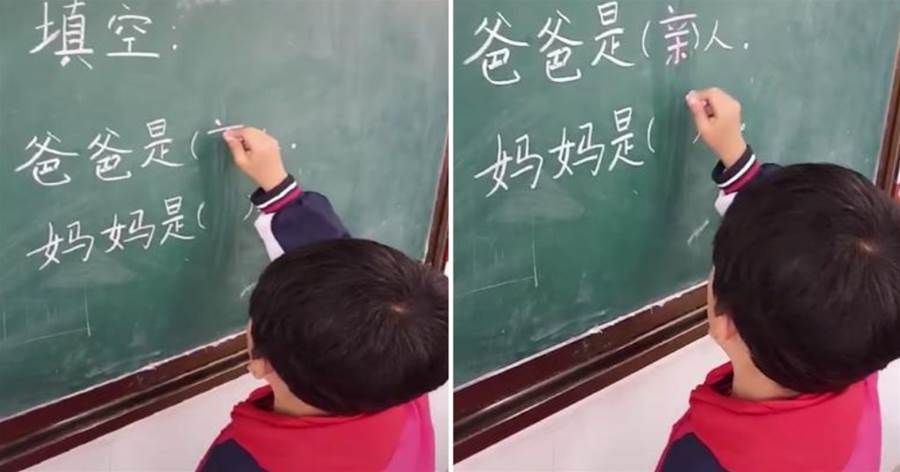 填空:
爸爸是(亠 .
妈妈是( )
爸爸是(亲)人.
妈妈是( )